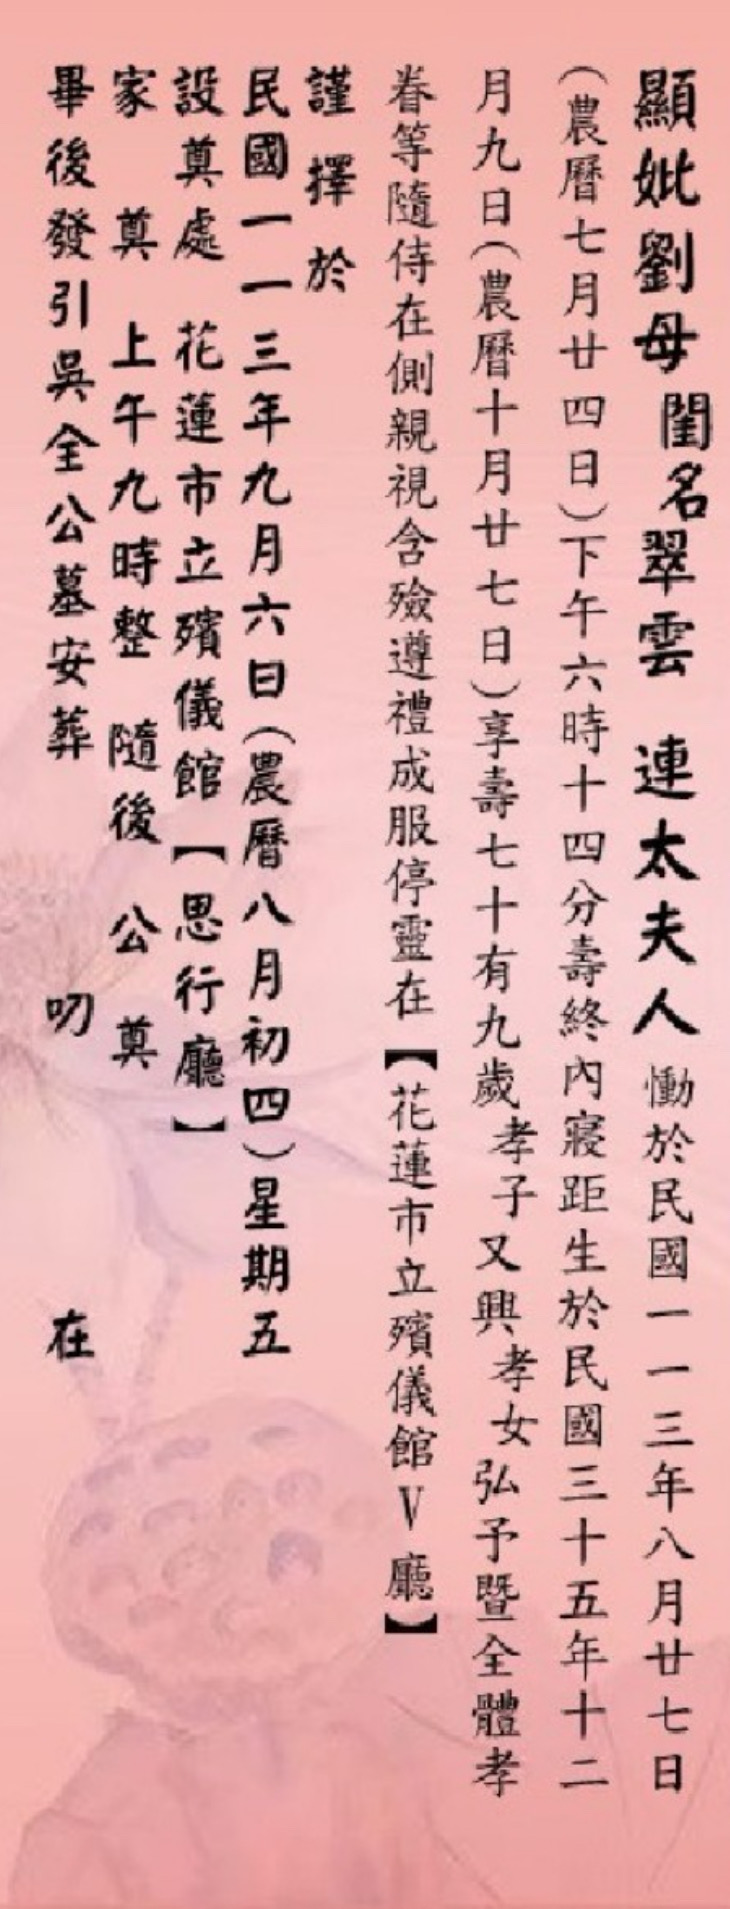 顯妣劉母閨名翠雲 連太夫人慟於民國一一三年八月廿七日
（農曆七月廿四日）下午六時十四分壽終內寢距生於民國三十五年十二
月九日（農曆十月廿七日）享壽七十有九歲孝子又興孝女弘予暨全體孝
眷等隨侍在側親視含殮遵禮成服停靈在【花蓮市立殯儀館V廳】
謹擇於
民國一一三年九月六日（農曆八月初四）星期五
設奠處 花蓮市立殯儀館【思行廳】
家 奠 上午九時整 隨後 公 奠
畢後發引吳全公墓安葬 叨 在